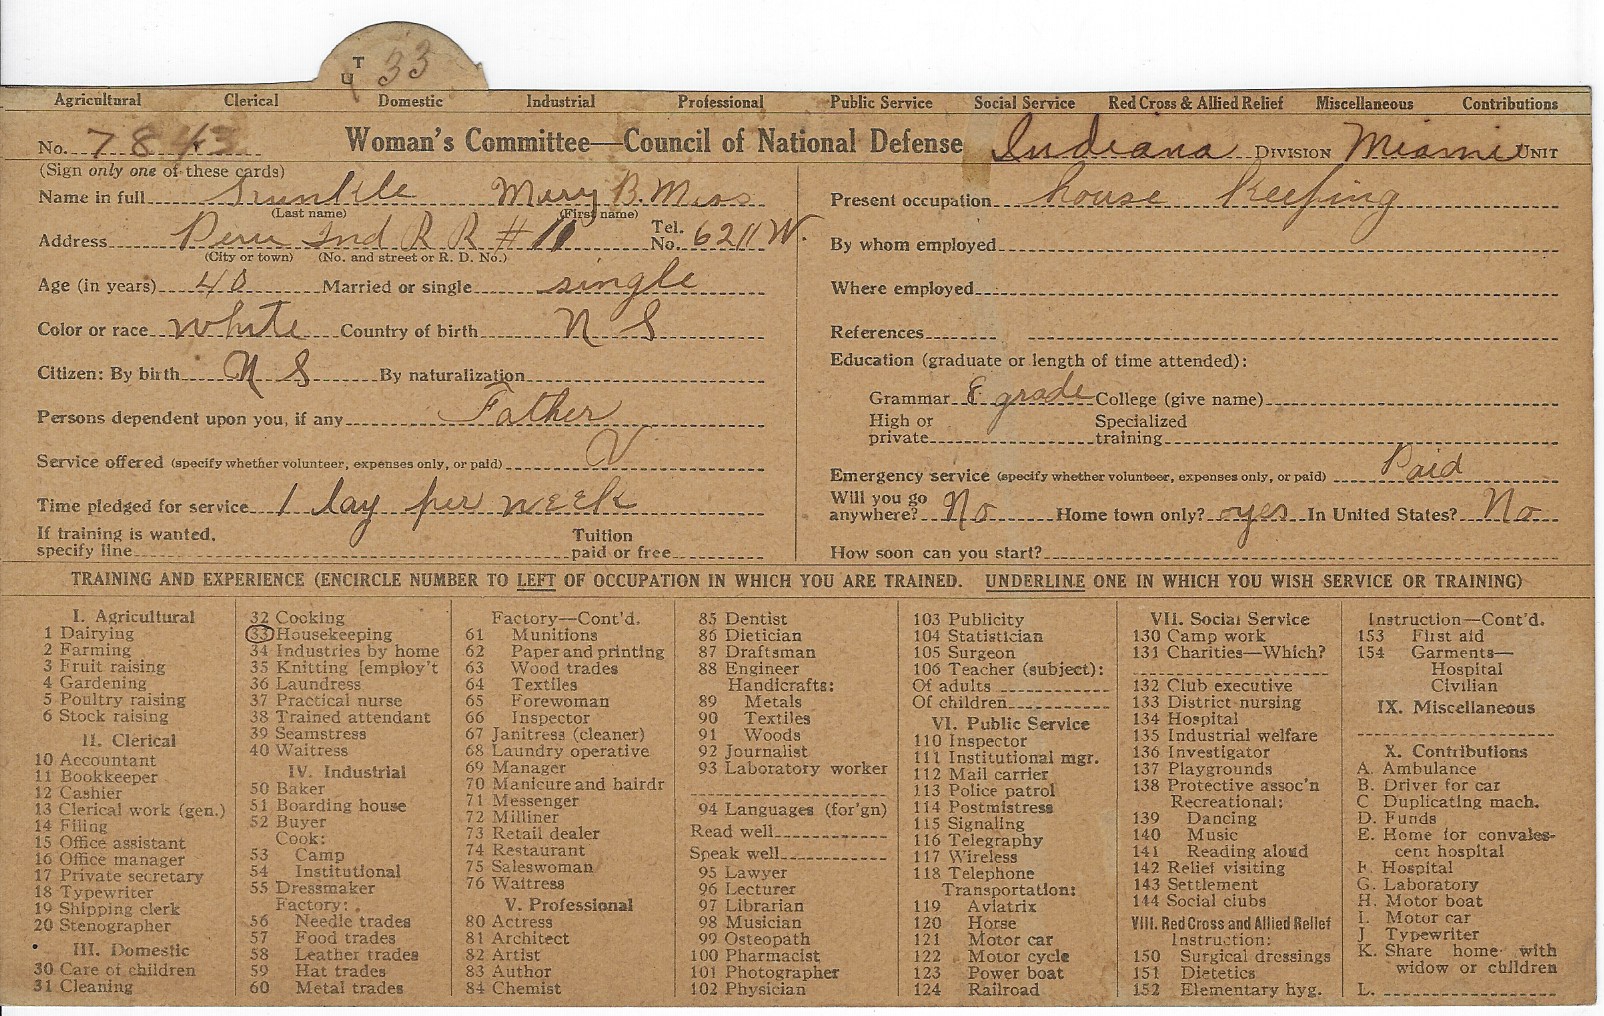 T 33
U
Agricultural Clerical Domestic Industrial Professional Public Service Social Service Red Cross & Allied Relief Miscellaneous Contributions
No. 7843 Woman's Committee—Council of National Defense Indiana DIVISION Miami UNIT
(Sign only one of these cards)
Name in full Mary B. Miss
(Last name) (First name)
Address Peru Ind R R # 11 Tel. No. 6211 W.
(City or town) (No. and street or R. D. No.)
Age (in years) 40 Married or single single
Color or race white Country of birth N S
Citizen: By birth N S By naturalization
Persons dependent upon you, if any Father
Service offered (specify whether volunteer, expenses only, or paid) V
Time pledged for service 1 day per week
If training is wanted, specify line Tuition paid or free
Present occupation house keeping
By whom employed
Where employed
References
Education (graduate or length of time attended):
Grammar 8 grade College (give name)
High or private Specialized training
Emergency service (specify whether volunteer, expenses only, or paid) Paid
Will you go anywhere? No Home town only? yes In United States? No
How soon can you start?
TRAINING AND EXPERIENCE (ENCIRCLE NUMBER TO LEFT OF OCCUPATION IN WHICH YOU ARE TRAINED. UNDERLINE ONE IN WHICH YOU WISH SERVICE OR TRAINING)
I. Agricultural
1 Dairying
2 Farming
3 Fruit raising
4 Gardening
5 Poultry raising
6 Stock raising
II. Clerical
10 Accountant
11 Bookkeeper
12 Cashier
13 Clerical work (gen.)
14 Filing
15 Office assistant
16 Office manager
17 Private secretary
18 Typewriter
19 Shipping clerk
20 Stenographer
III. Domestic
30 Care of children
31 Cleaning
32 Cooking
33 Housekeeping
34 Industries by home
35 Knitting [employ't
36 Laundress
37 Practical nurse
38 Trained attendant
39 Seamstress
40 Waitress
IV. Industrial
50 Baker
51 Boarding house
52 Buyer
Cook:
53 Camp
54 Institutional
55 Dressmaker
Factory:
56 Needle trades
57 Food trades
58 Leather trades
59 Hat trades
60 Metal trades
Factory—Cont'd.
61 Munitions
62 Paper and printing
63 Wood trades
64 Textiles
65 Forewoman
66 Inspector
67 Janitress (cleaner)
68 Laundry operative
69 Manager
70 Manicure and hairdr
71 Messenger
72 Milliner
73 Retail dealer
74 Restaurant
75 Saleswoman
76 Waitress
V. Professional
80 Actress
81 Architect
82 Artist
83 Author
84 Chemist
85 Dentist
86 Dietician
87 Draftsman
88 Engineer
Handicrafts:
89 Metals
90 Textiles
91 Woods
92 Journalist
93 Laboratory worker
94 Languages (for'gn)
Read well
Speak well
95 Lawyer
96 Lecturer
97 Librarian
98 Musician
99 Osteopath
100 Pharmacist
101 Photographer
102 Physician
103 Publicity
104 Statistician
105 Surgeon
106 Teacher (subject):
Of adults
Of children
VI. Public Service
110 Inspector
111 Institutional mgr.
112 Mail carrier
113 Police patrol
114 Postmistress
115 Signaling
116 Telegraphy
117 Wireless
118 Telephone
Transportation:
119 Aviatrix
120 Horse
121 Motor car
122 Motor cycle
123 Power boat
124 Railroad
VII. Social Service
130 Camp work
131 Charities—Which?
132 Club executive
133 District nursing
134 Hospital
135 Industrial welfare
136 Investigator
137 Playgrounds
138 Protective assoc'n
Recreational:
139 Dancing
140 Music
141 Reading aloud
142 Relief visiting
143 Settlement
144 Social clubs
VIII. Red Cross and Allied Relief
Instruction:
150 Surgical dressings
151 Dietetics
152 Elementary hyg.
Instruction—Cont'd.
153 First aid
154 Garments—
Hospital
Civilian
IX. Miscellaneous
X. Contributions
A. Ambulance
B. Driver for car
C Duplicating mach.
D. Funds
E. Home for convales-
cent hospital
F. Hospital
G. Laboratory
H. Motor boat
I. Motor car
J Typewriter
K. Share home with
widow or children
L.